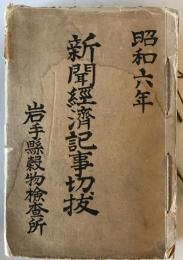 昭和六年
新聞經濟記事切抜
岩手縣穀物檢查所